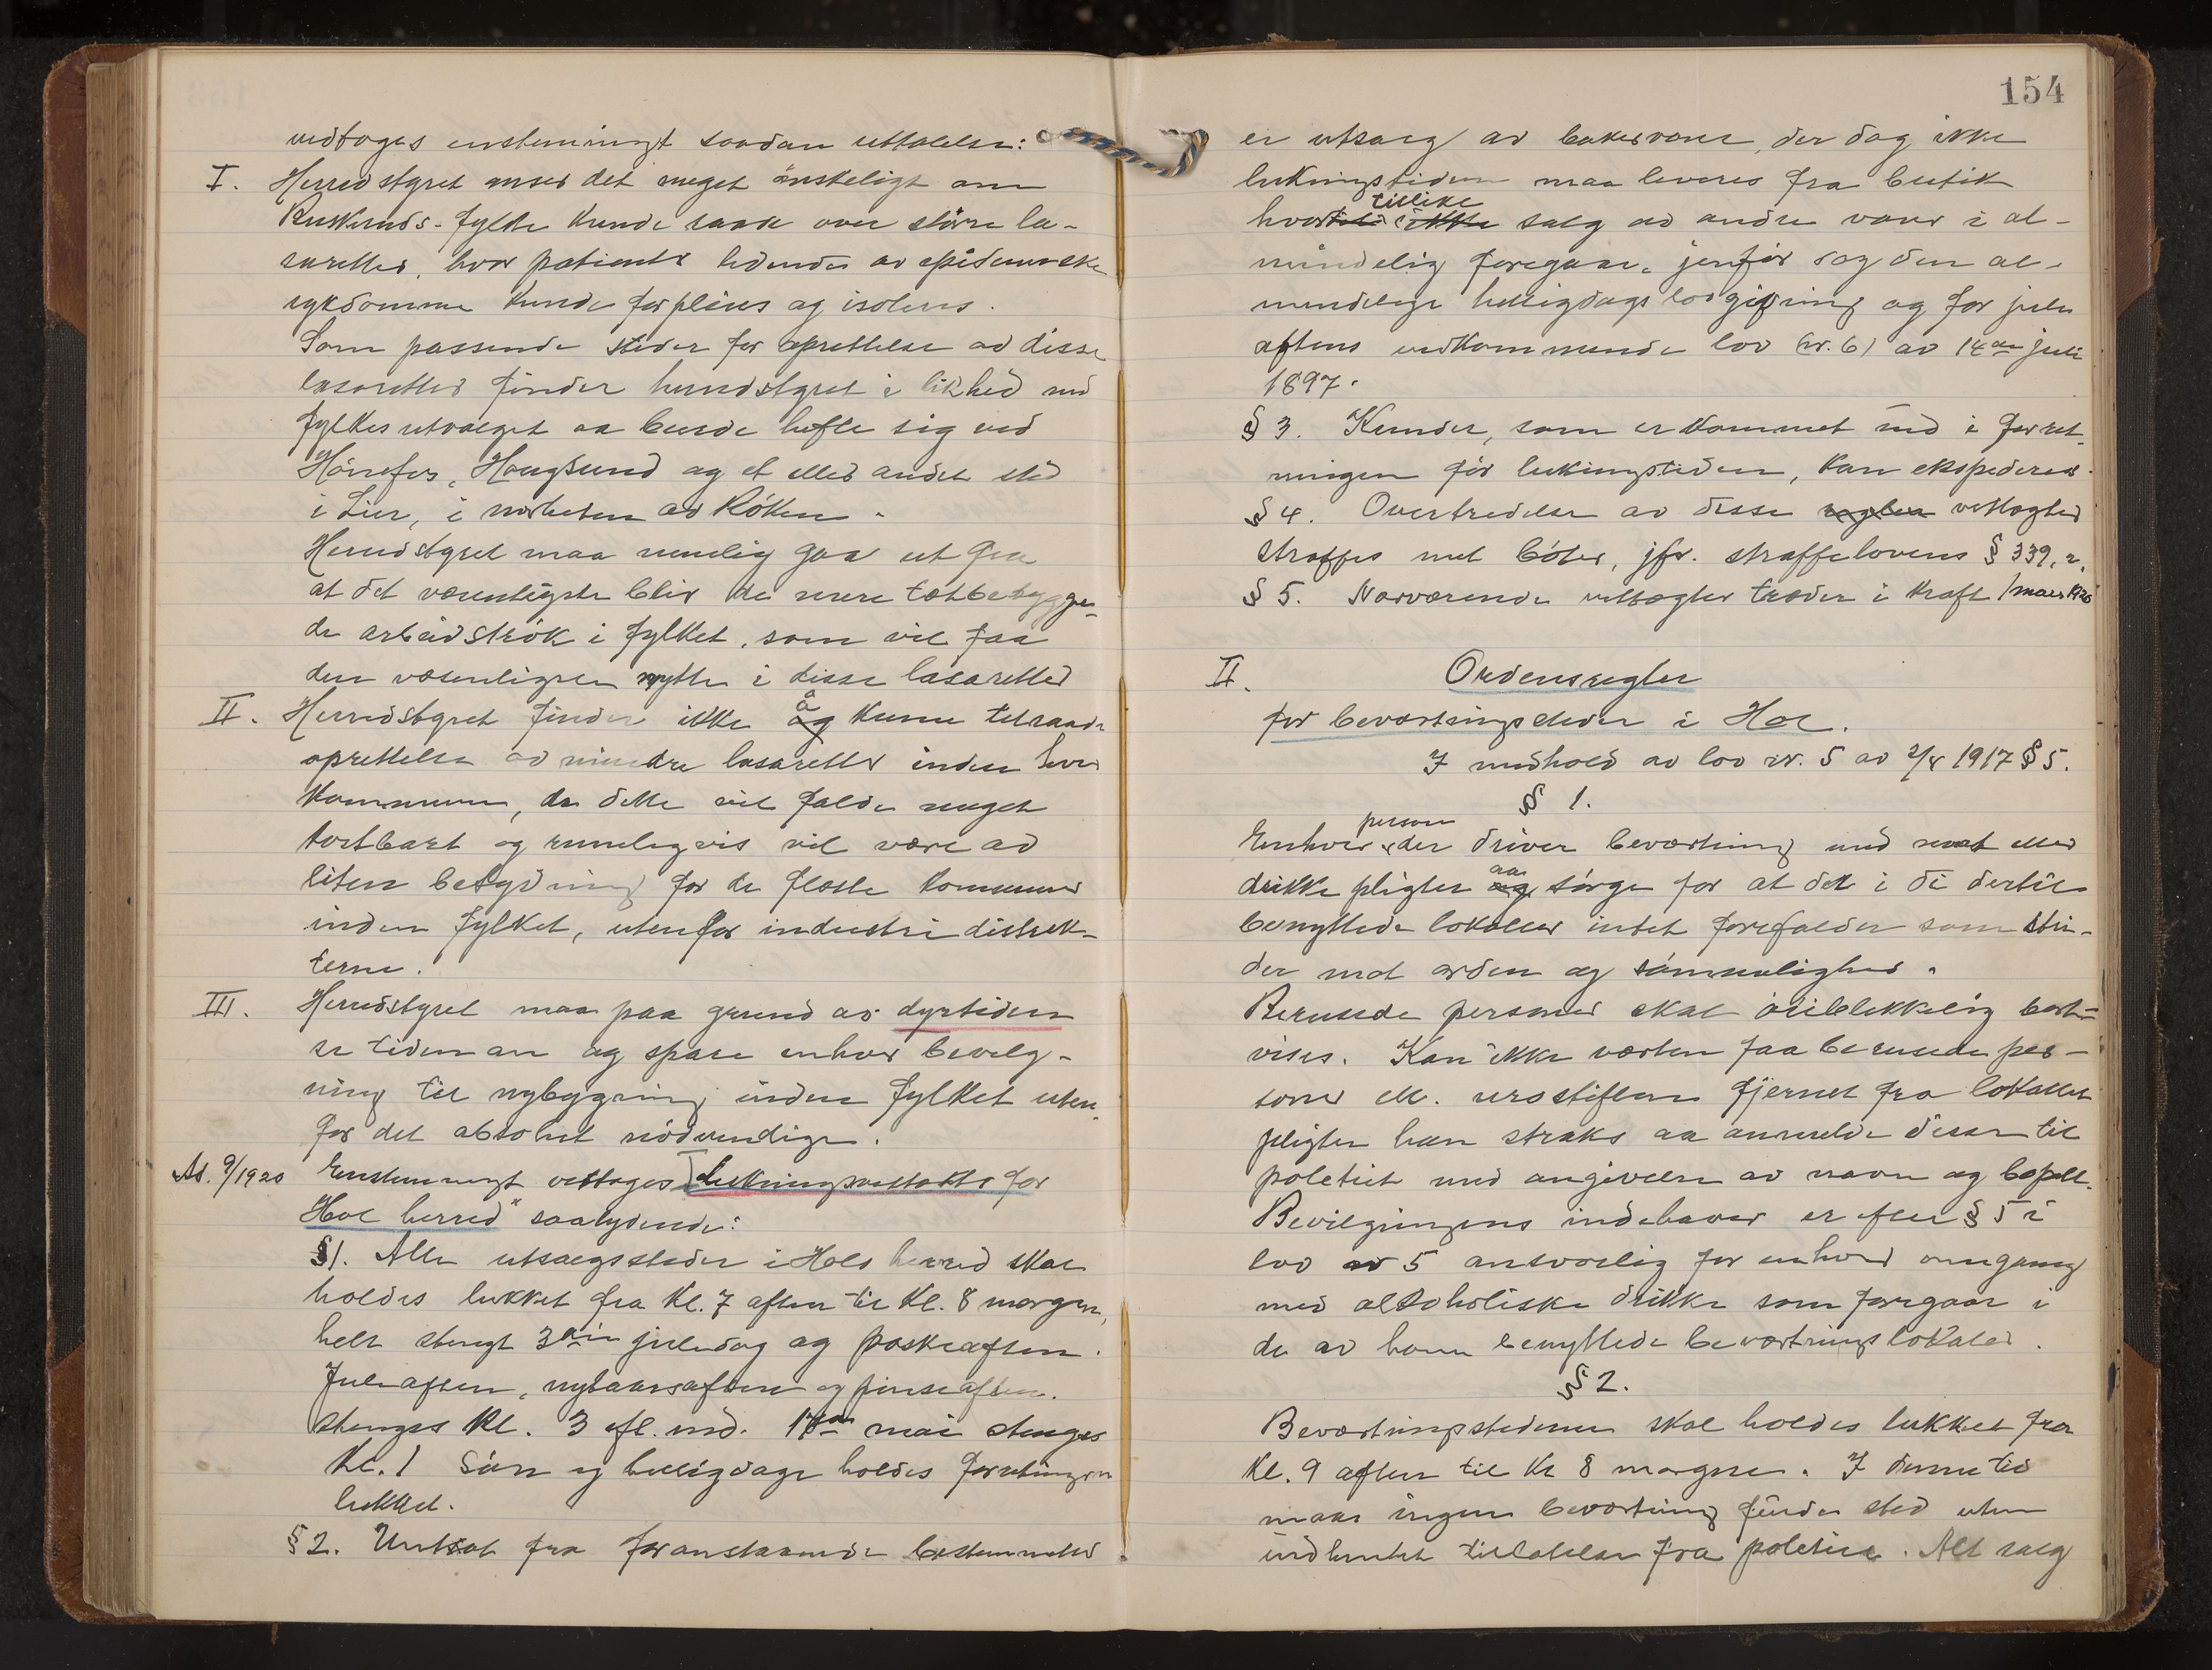 vedtoges enstemmigt saadan uttalelse:
I. Herredstyret anser det meget ønskeligt om
Buskeruds-fylke kunde raade over större la-
saretter, hvor patienter lidende av epidemiske
sykdomme kunde forpleies og isoleres.
Som passende steder for oprettelse av disse
lasaretter finder herredstyret i likhed med
fylkesutvalget aa burde hefte sig ved
Hönefos, Hougsund og et eller andet sted
i Lier, i nærheten av Röken.
Herredstyret maa nemlig gaa ut fra
at det væsentligste blir de mere tætbebygge-
de arbeidströk i fylket, som vil faa
den væsenligsen nytte i disse lasaretter
II. Herredstyret finder ikke å kunne tilraade
oprettelse av mindre lasaretter inden hver
kommune, da dette vil falde meget
kostbart og rimeligvis vil være av
liten betydning for de fleste kommuner
inden fylket, utenfor industridistrik-
terne.
III. Herredstyret maa paa grund av dyrtiden
se tiden an og spare enhver bevilg-
ning til nybygning inden fylket uten
for det absolut nödvendige.
As. 9/1920 Enstemmigt vettoges "lukningsvettækter for
Hol herred" saalydende:
§1. Alle utsalgssteder i Hols herred skal
holdes lukket fra kl. 7 aften til kl. 8 morgen,
helt stengt 3die juledag og paskeaften.
Juleaften, nytaarsaften og pinseaften.
stenges kl. 3 efl. md. 17de mai stenges
kl. 1 Sön og helligdage holdes forretningen
lukket.
§2. Unttat fra foranstaaende bestemmelser
154
er utsalg av bakervarer, der dog ikke
lukningstiden maa leveres fra butik
hvor tillike salg av andre varer i al-
mindelig foregaar, jenför og den al-
mindelige helligdagslovgivning og for jule
aftens vedkommende lov (nr. 6) av 14de juli
1897.
§3. Kunder, som er kommet ind i forret-
ningen för lukningstiden, kan ekspederes.
§4. Overtredelse av disse regler vettægter
straffes met böter, jfr. straffelovens § 339, 2.
§5. Nærværende vettægter træder i kraft 1 mars 1920
II. Ordensregler
for bevertningssteder i Hol.
I medhold av lov nr. 5 av 2/4 1917 § 5.
§ 1.
Enhver person der driver bevertning med mat eller
drikke pligter aa sörge for at det i de dertil
benyttede lokaler intet forefalder som stri-
der mot orden og sömmelighet.
Berusede personer skal öieblikkelig bort-
vises. Kan ikke værten faa berusede per-
soner ell. urostiftere fjernet fra lokalet
pligter han straks aa anmelde disse til
politiet med angivelse av navn og bopæl.
Bevilgningens indehaver er efter § 5 i
lov nr 5 ansvarlig for enhver omgang
med alkoholiske drikke som foregaar i
de av ham benyttede bevertningslokaler.
§ 2.
Bevertningstederne skal holdes lukket fra
kl. 9 aften til kl 8 morgen. I denne tid
maa ingen bevertning finde sted uten
indhentet tillatelse fra politiet. Alt salg